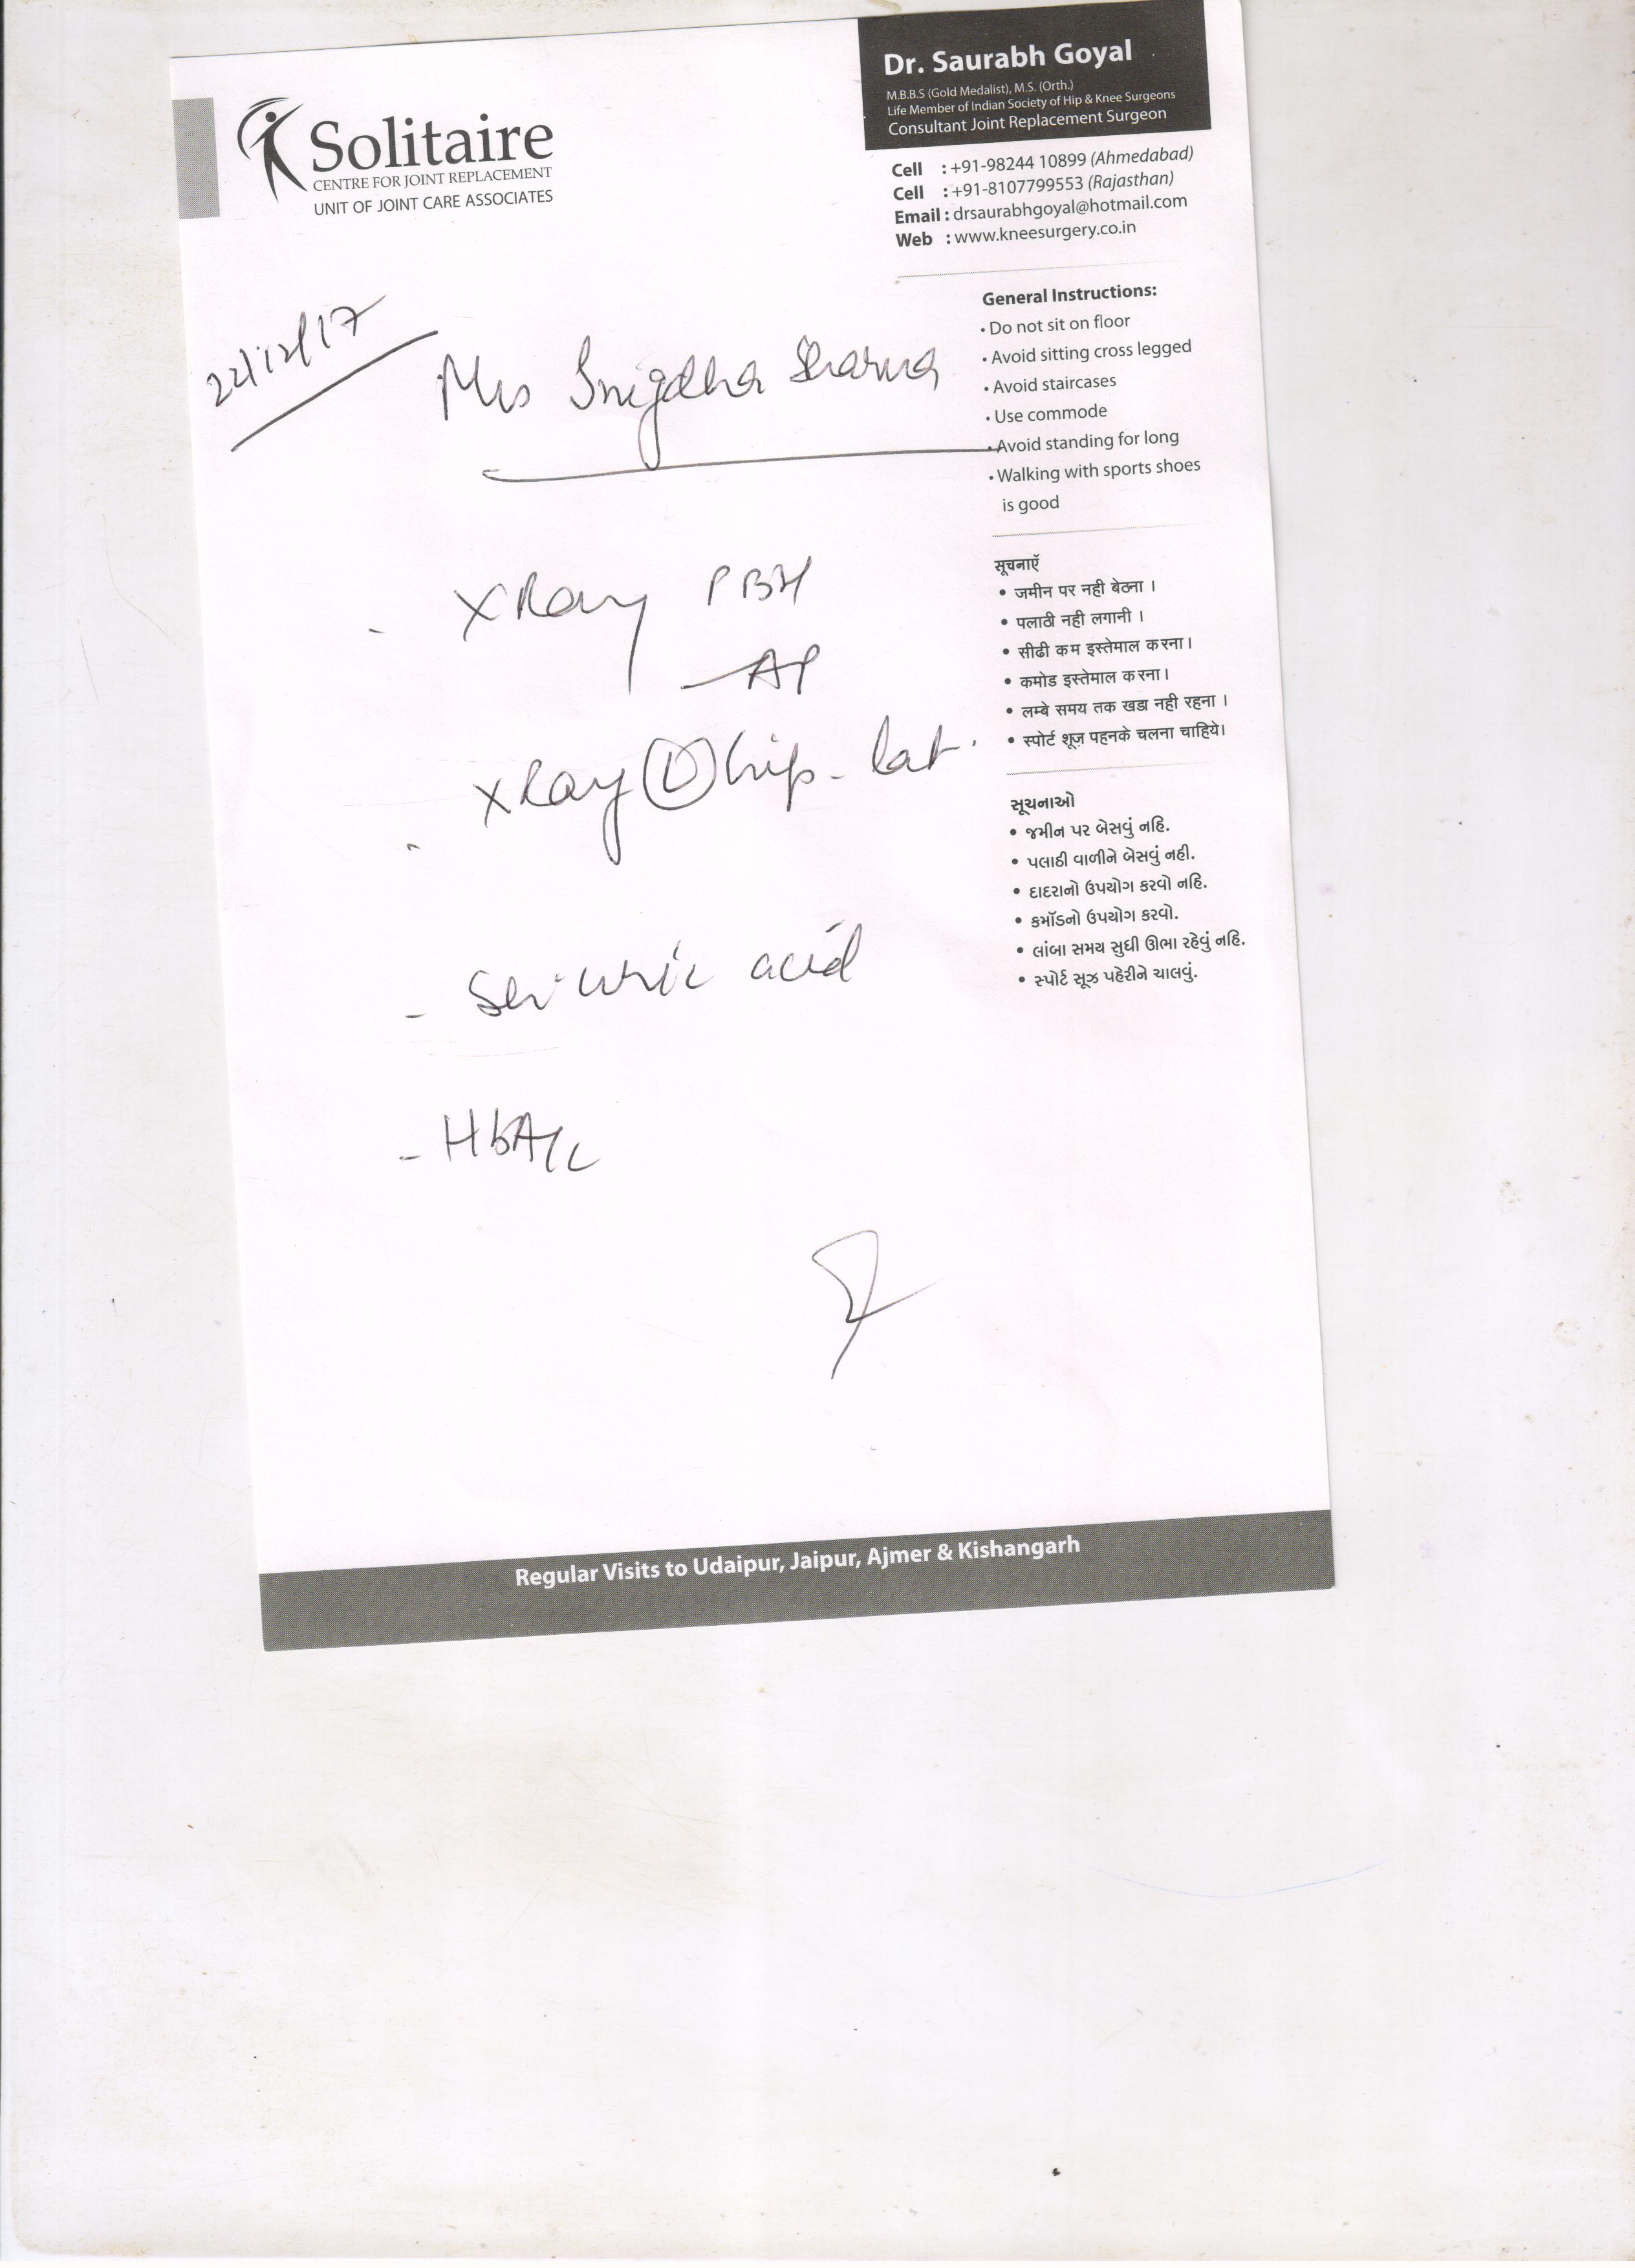 Solitaire
CENTRE FOR JOINT REPLACEMENT
UNIT OF JOINT CARE ASSOCIATES
Dr. Saurabh Goyal
M.B.B.S (Gold Medalist), M.S. (Orth.)
Life Member of Indian Society of Hip & Knee Surgeons
Consultant Joint Replacement Surgeon
Cell : +91-98244 10899 (Ahmedabad)
Cell : +91-8107799553 (Rajasthan)
Email : drsaurabhgoyal@hotmail.com
Web : www.kneesurgery.co.in
22/12/17
Mrs Snigdha Sharma
- X Ray PBH
- AP
- X Ray (L) hip - lat.
- Ser. uric acid
- HbA1c
General Instructions:
• Do not sit on floor
• Avoid sitting cross legged
• Avoid staircases
• Use commode
• Avoid standing for long
• Walking with sports shoes
is good
सूचनाएँ
• जमीन पर नही बेठना ।
• पलाठी नही लगानी ।
• सीढी कम इस्तेमाल करना।
• कमोड इस्तेमाल करना।
• लम्बे समय तक खडा नही रहना ।
• स्पोर्ट शूज़ पहनके चलना चाहिये।
સૂચનાઓ
• જમીન પર બેસવું નહિ.
• પલાઠી વાળીને બેસવું નહી.
• દાદરાનો ઉપયોગ કરવો નહિ.
• કમૉડનો ઉપયોગ કરવો.
• લાંબા સમય સુધી ઊભા રહેવું નહિ.
• સ્પોર્ટ સૂઝ પહેરીને ચાલવું.
Regular Visits to Udaipur, Jaipur, Ajmer & Kishangarh